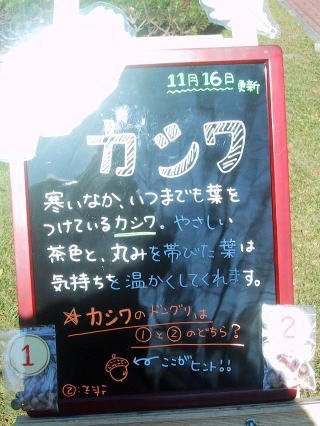 11月16日更新
カシワ
寒いなか、いつまでも葉を
つけているカシワ。やさしい
茶色と、丸みを帯びた葉は
気持ちを温かくしてくれます。
☆カシワのドングリは
①と②のどちら?
ここがヒント!!
1
2